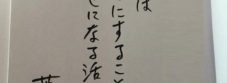 は
にすること
しになる活